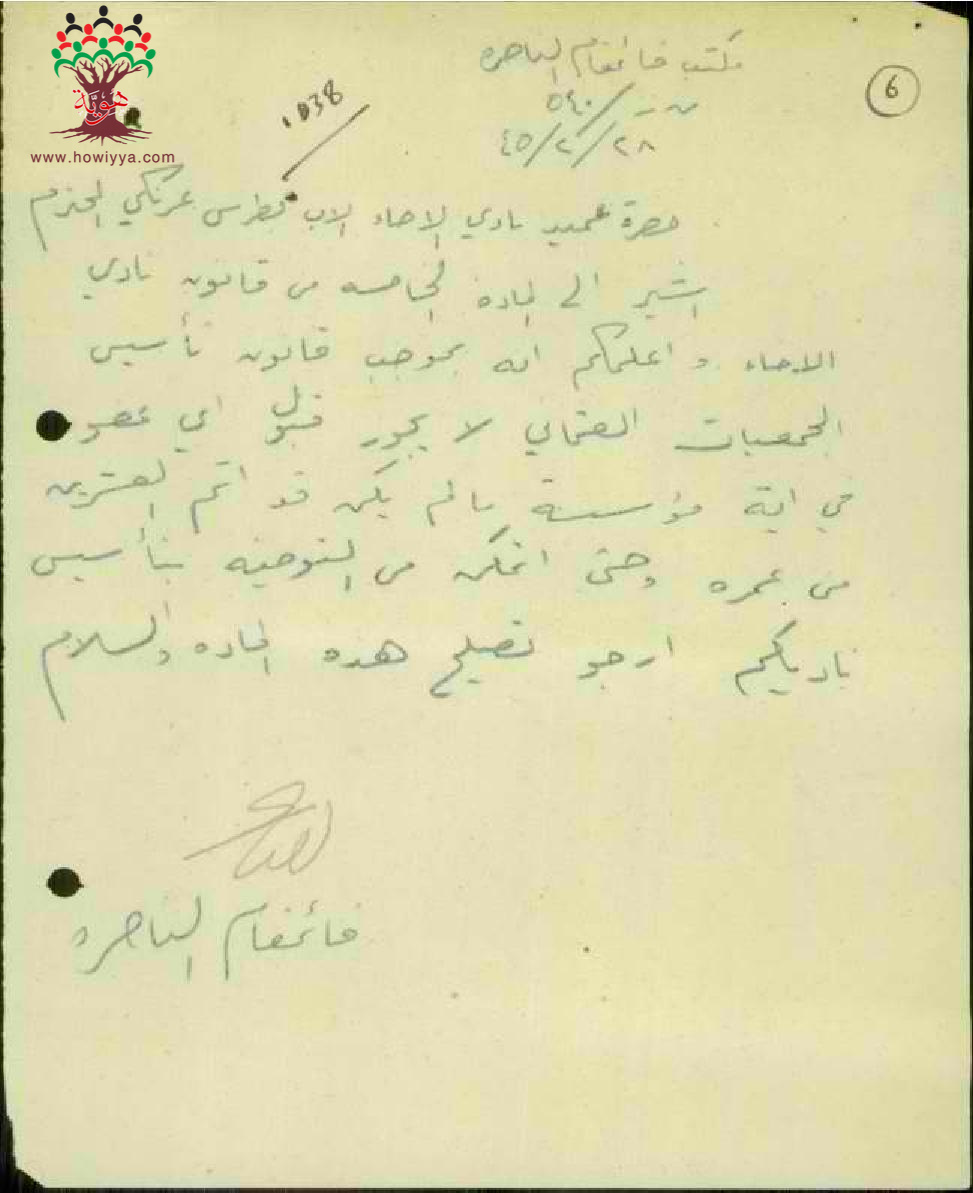 هوية
www.howiyya.com
6
مكتب قائمقام الناصره
ن ر/٥٤٠
٤٥/٢/٢٨
1038
حضرة عميد نادي الاخاء الاب بطرس عرنكي المحترم
اشير الى المادة الخامسه من قانون نادي
الاخاء واعلمكم انه بموجب قانون تأسيس
الجمعيات العثماني لا يجوز قبول اي عضو
في اية مؤسسة ما لم يكن قد اتم العشرين
من عمره وحتى اتمكن من التوصيه بتأسيس
ناديكم ارجو تصليح هذه الماده والسلام
قائمقام الناصره